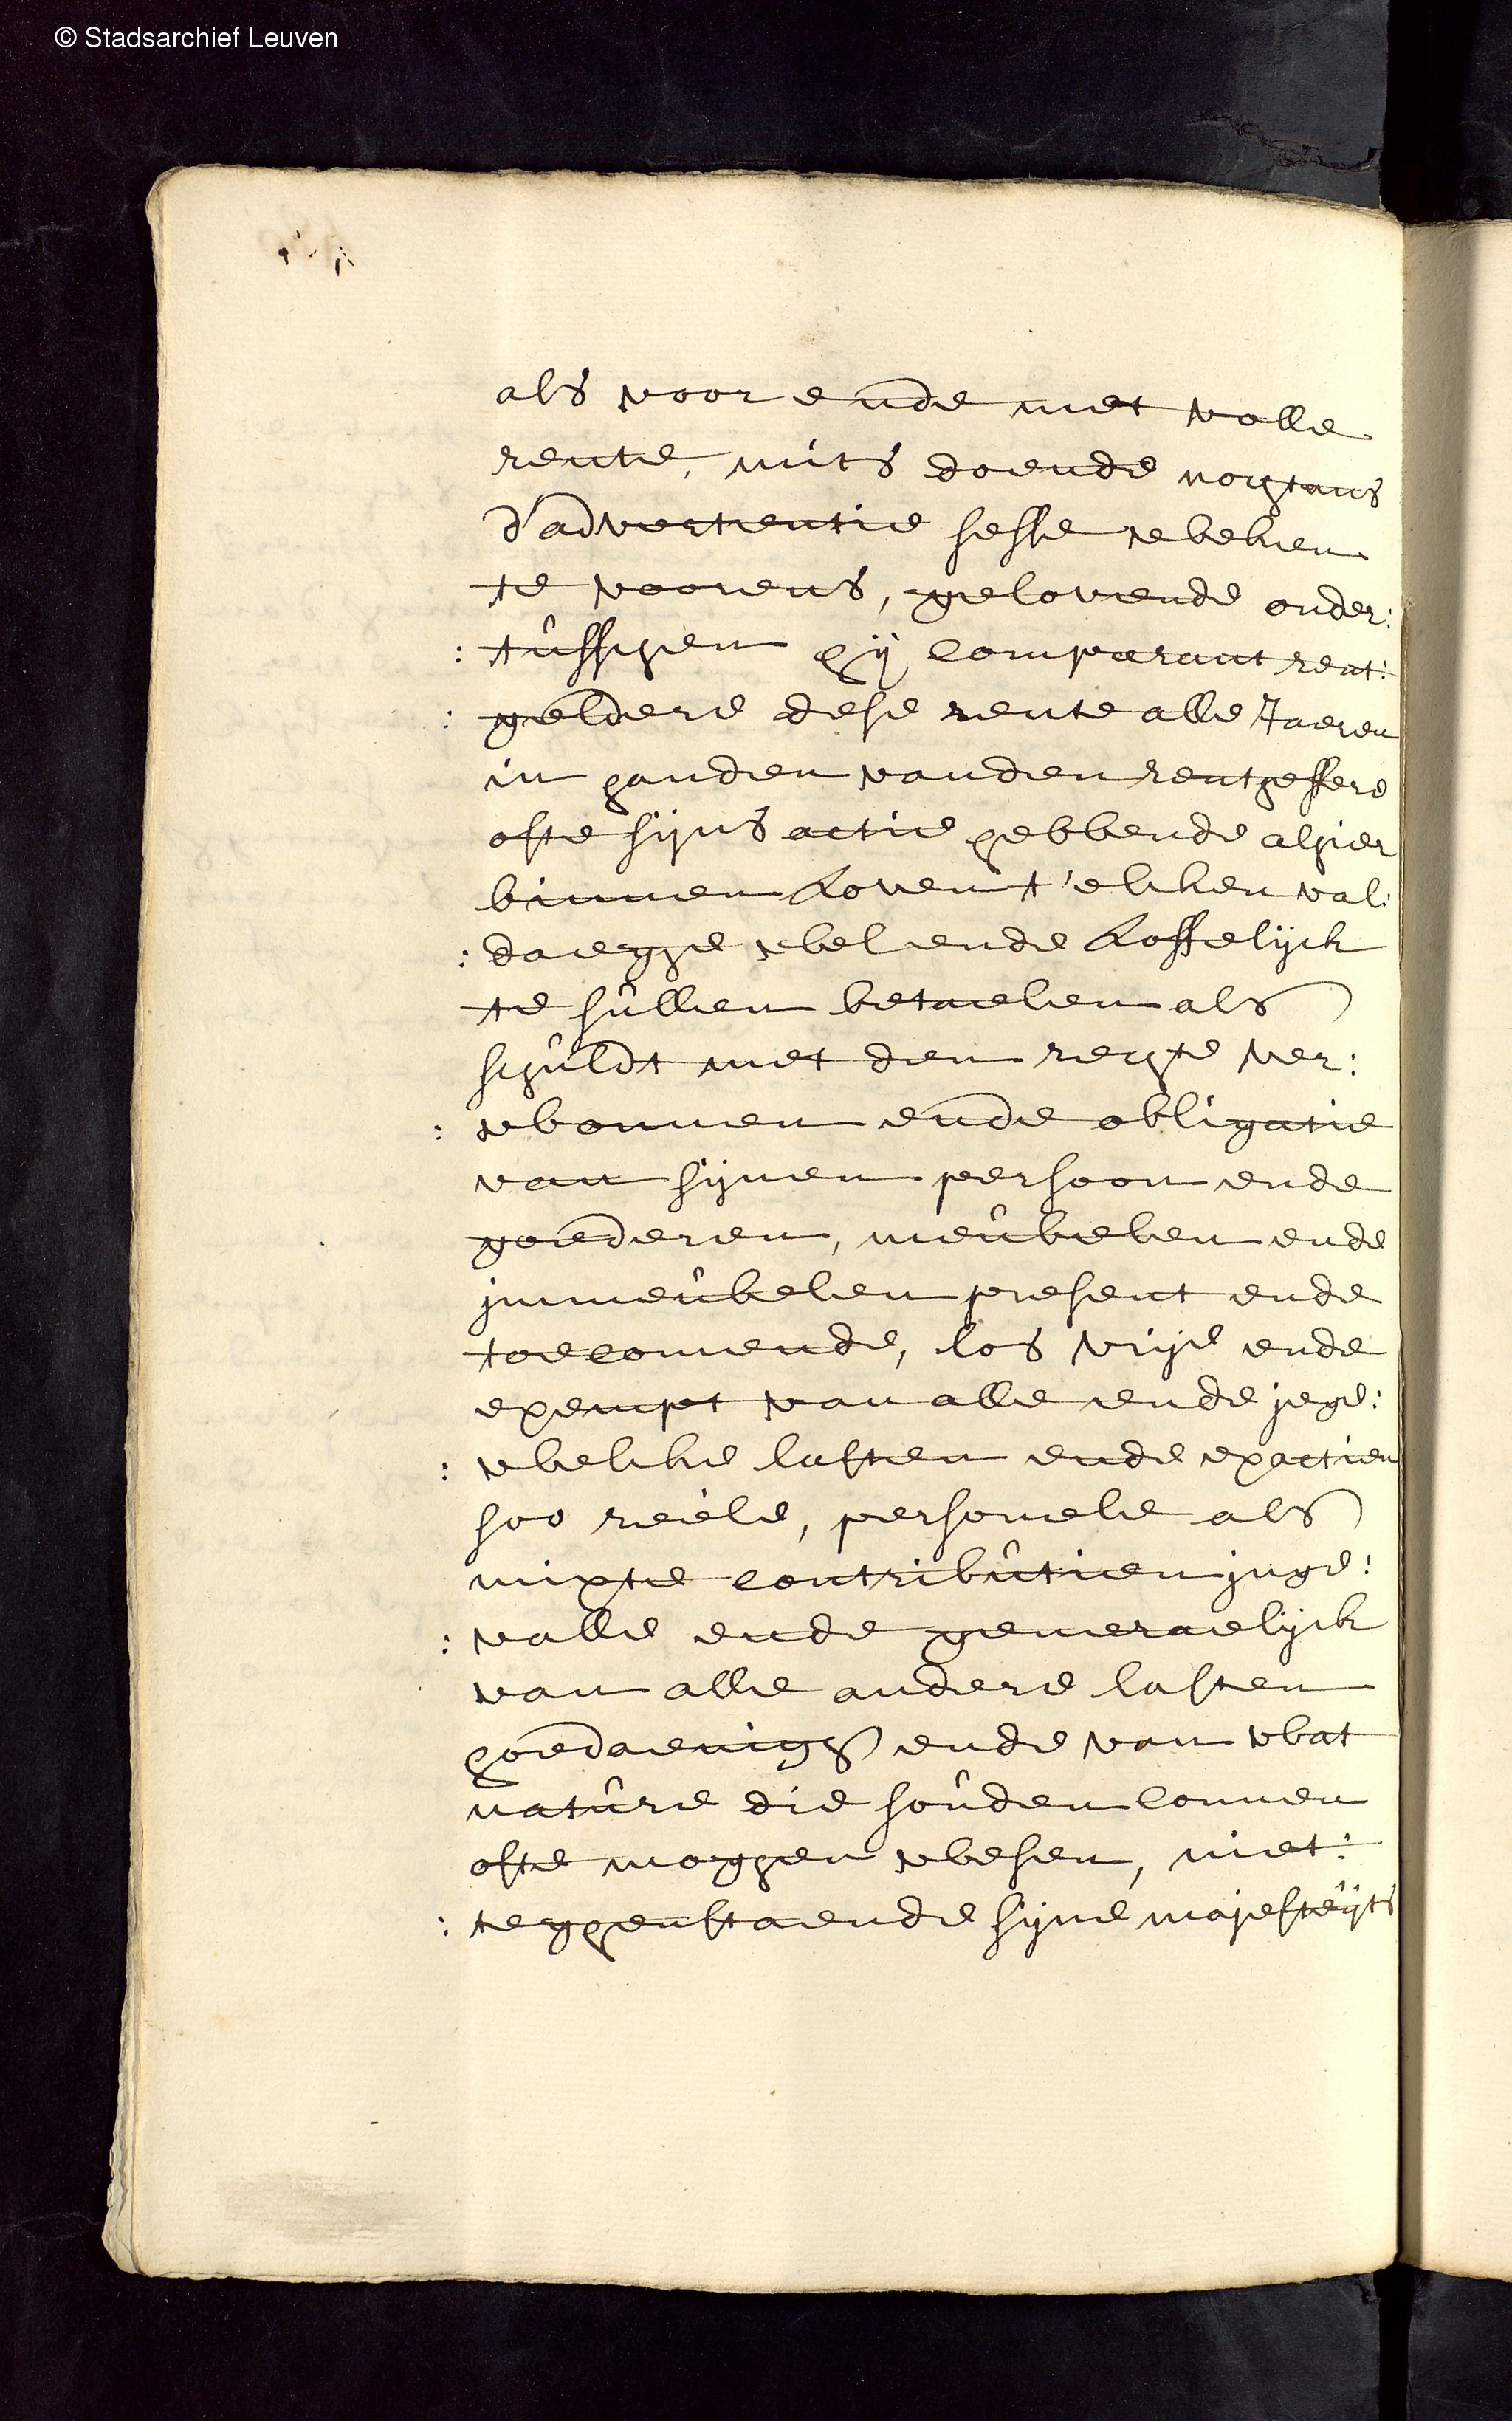 © Stadsarchief Leuven
als voor ende met volle
rente, mits doende nochtans
d'advertentie sesse weken
te voorens, gelovende onder:
: tusschen hij comparant rent:
: geldere dese rente alle Jaeren
in handen vanden rentheffere
ofte sijns actie hebbende alhier
binnen Loven t'elcken val:
: daeghe wel ende Loffelijck
te sullen betaelen als
schuldt met den rechte ver:
: wonnen ende obligatie
van sijnen persoon ende
goederen, meubelen ende
immeubelen present ende
toecomende, los vrije ende
exempt van alle ende jege:
: welcke lasten ende exactien
soo reële, personele als
mixte contributien inge:
: valle ende generaelijck
van alle andere lasten
hoedaenigh ende van wat
nature die souden connen
ofte moghen wesen, niet:
: teghenstaende sijne majesteijts